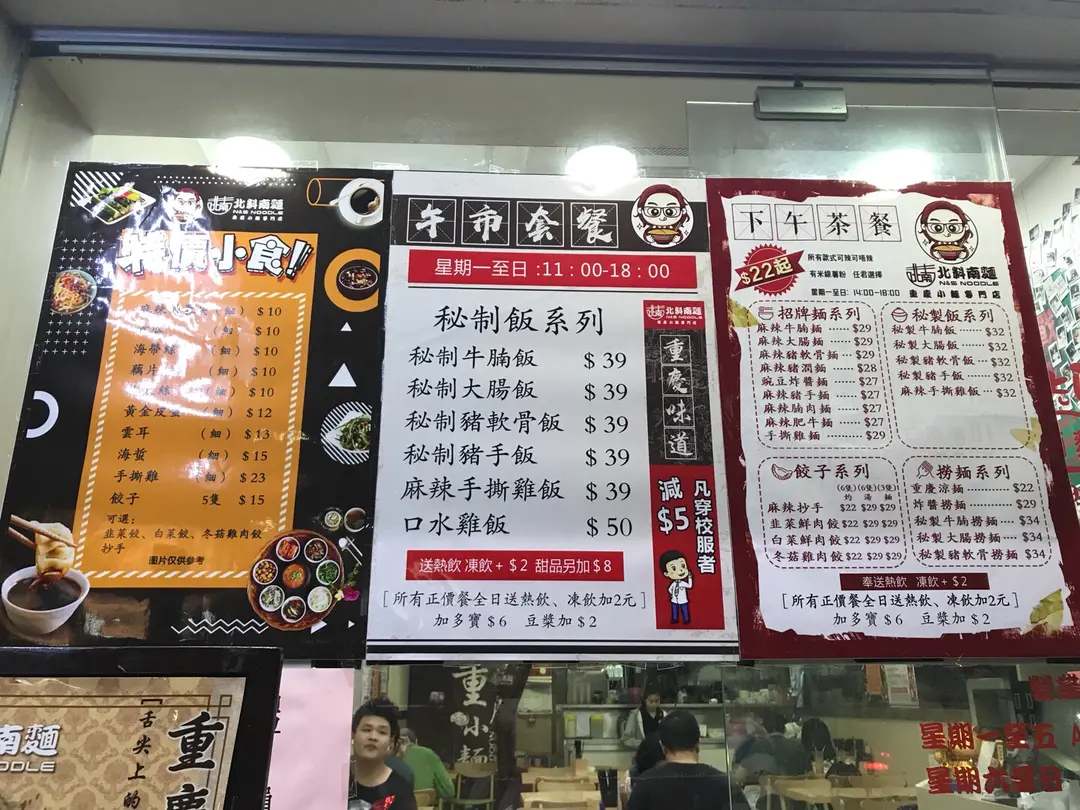 北斜南麵
N&S NOODLE
特價小食!!
$ 10
(細) $ 10
海帶絲 (細) $ 10
藕片 (細) $ 10
絲 (細) $ 10
黃金皮蛋 (細) $ 12
雲耳 (細) $ 13
海蜇 (細) $ 15
手撕雞 (細) $ 23
餃子 5隻 $ 15
可選:
韭菜餃、白菜餃、冬菇雞肉餃
抄手
图片仅供参考
午市套餐
星期一至日 :11:00-18:00
秘制飯系列
秘制牛腩飯 $ 39
秘制大腸飯 $ 39
秘制豬軟骨飯 $ 39
秘制豬手飯 $ 39
麻辣手撕雞飯 $ 39
口水雞飯 $ 50
送熱飲 凍飲+ $ 2 甜品另加 $ 8
[ 所有正價餐全日送熱飲、凍飲加2元 ]
加多寶 $ 6 豆漿加 $ 2
北斜南麵
N&S NOODLE
重慶小麵專門店
重慶味道
凡穿校服者
減$5
下午茶餐
$22起
所有款式可辣可唔辣
有米線薯粉 任君選擇
星期一至日: 14:00-18:00
北斜南麵
N&S NOODLE
重慶小麵專門店
招牌麵系列
麻辣牛腩麵 ······ $29
麻辣大腸麵 ······ $29
麻辣豬軟骨麵 ···· $29
麻辣豬潤麵 ······ $28
豌豆炸醬麵 ······ $27
麻辣豬手麵 ······ $27
麻辣腩肉麵 ······ $27
麻辣肥牛麵 ······ $27
手撕雞麵 ······ $29
秘製飯系列
秘製牛腩飯 ······ $32
秘製大腸飯 ······ $32
秘製豬軟骨飯 ···· $32
秘製豬手飯 ······ $32
麻辣手撕雞飯 $32
餃子系列
(6隻)(6隻)(3隻)
灼 湯 麵
麻辣抄手 $22 $29 $29
韭菜鮮肉餃 $22 $29 $29
白菜鮮肉餃 $22 $29 $29
冬菇雞肉餃 $22 $29 $29
撈麵系列
重慶涼麵 ·········· $22
炸醬撈麵 ·········· $29
秘製牛腩撈麵 ···· $34
秘製大腸撈麵 ···· $34
秘製豬軟骨撈麵 $34
奉送熱飲 凍飲+ $2
[ 所有正價餐全日送熱飲、凍飲加2元 ]
加多寶 $ 6 豆漿加 $ 2
南麵
OODLE
舌尖上的
重慶
重小麵
星期一至五
星期六至日